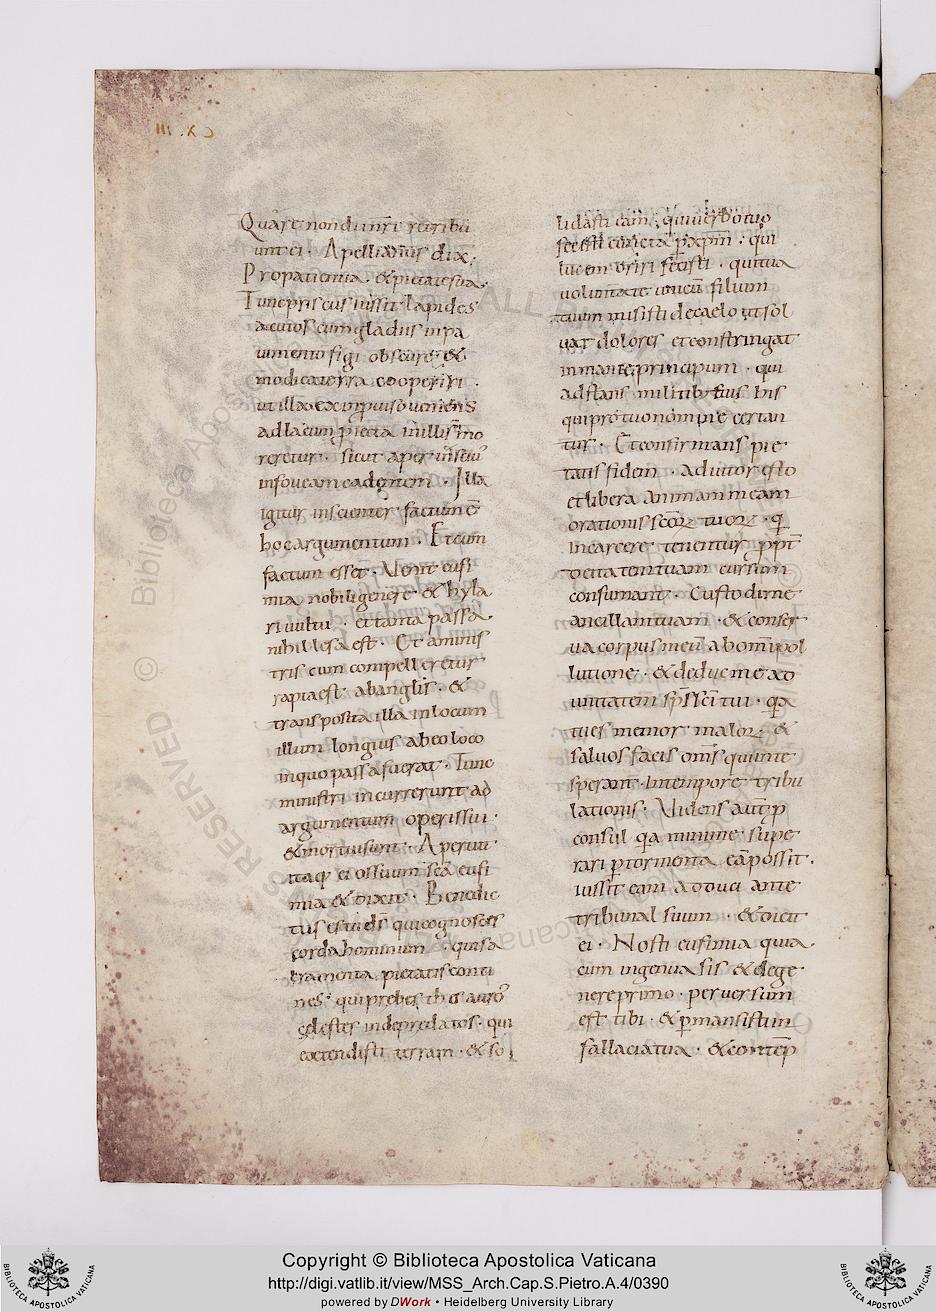 III. XC
Quare non dii nr̄i retribu
unt ei · Apellianus dix̄ ·
Propatientia · & pietate sua ·
Tunc priscus iussit lapides
acutos cum gladiis in pa
uimento figi obscure &
modica terra cooperiri ·
ut illa ex inprouiso ueniens
ad lacum piecta
retur · sicut aper
in foueam cadentem · Illa
igitur insciente factum ē
hoc argumentum · Et cum
factum esset · Venit eufi
mia nobili genere & hyla
ri uultu · et tanta passa
nihil lesa est · Et a minis
tris cum compelleretur
rapta est ab angl̄is · &
transposita illa in locum
illum longius ab eo loco
in quo passa fuerat · Tunc
ministri incurrerunt ad
argumentum operis sui ·
& mortui sunt · Aperuit
itaq; ei os suum sc̄a eufi
mia & dixit · Benedic
tus es tu ds̄ qui cognosces
corda hominum · qui sa
cramenta pietatis conti
nes · qui prebes
celestes indepredatos · qui
extendisti terram · & so
lidasti eam ; qui uerbo tuo
fecisti cuncta p xp̄m · qui
lucem oriri fecisti · qui tua
uoluntate unicū filium
tuum misisti de caelo ut sol
uat dolores et constringat
inmane principum · qui
adstans militib; tuis his
qui pro tuo nomine certan
tur · Et confirmans pie
tatis fidem · adiutor esto
et libera animam meam
orationis sc̄oꝝ tuoꝝ · q̄
in carcere tenentur ppt̄
ueritatem tuam cursum
consumant · Custodi me
ancillam tuam · & conser
ua corpus meū ab om̄i pol
lutione · & deduc me ad
unitatem sp̄s sc̄i tui · q̄a
tu es memor maloꝝ &
saluos facis om̄s qui in te
sperant in tempore tribu
lationis · Videns aut̄ p
consul q̄a minime supe
rari p tormenta eā possit ·
iussit eam adduci ante
tribunal suum · & dicit
ei · Nosti eufimia quia
cum ingenua sis & de ge
nere primo · peruersum
est tibi · & p̄mansisti in
fallacia tua · & contēp
Copyright © Biblioteca Apostolica Vaticana
http://digi.vatlib.it/view/MSS_Arch.Cap.S.Pietro.A.4/0390
powered by DWork • Heidelberg University Library
BIBLIOTECA APOSTOLICA VATICANA
BIBLIOTECA APOSTOLICA VATICANA